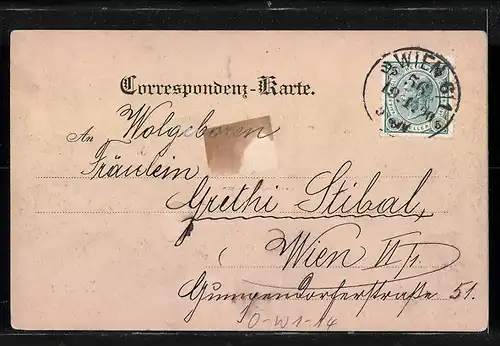 WIEN 6/1
Correspondenz-Karte.
An Wolgeboren
Fräulein
Grethi Stibal,
Wien VI/1.
Gumpendorferstraße 51.
O-W1-14